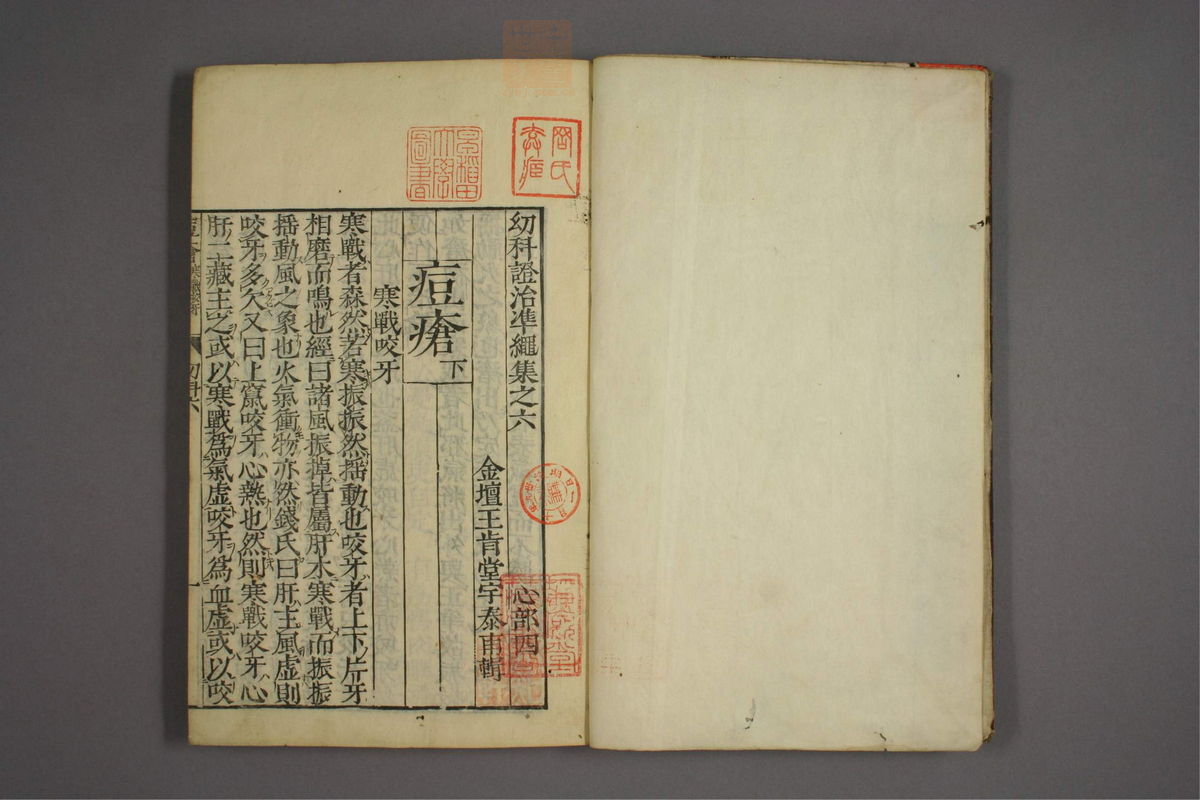 幼科證治準繩集之六
心部四
金壇王肯堂宇泰甫輯
痘瘡下
寒戰咬牙
寒戰者森然若寒振振然揺動也咬牙者上下斤牙
相磨而鳴也經曰諸風振掉皆屬肝木寒戰而振振
揺動風之象也火氣衝物亦然錢氏曰肝主風虚則
咬牙多欠又曰上竄咬牙心熱也然則寒戰咬牙心
肝二藏主之或以寒戰爲氣虚咬牙爲血虚或以咬
幼科六
一
早稻田大學圖書